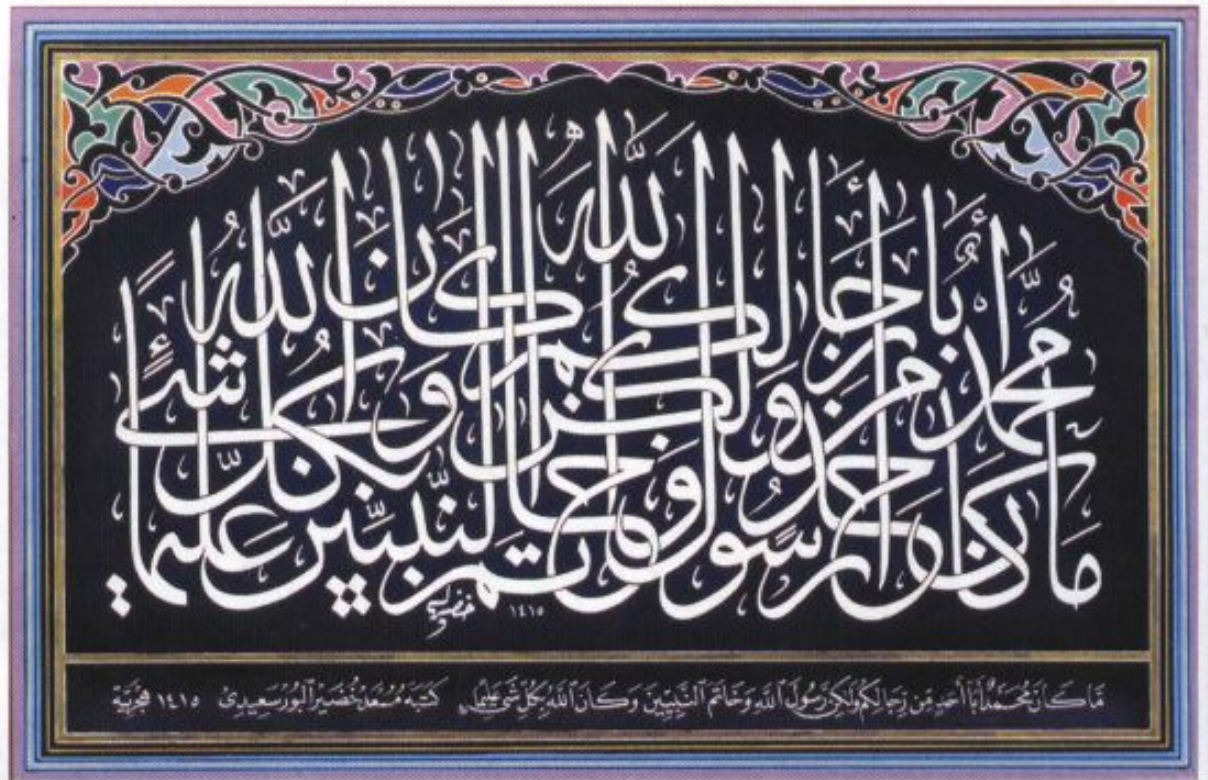 مَا كَانَ مُحَمَّدٌ أَبَا أَحَدٍ مِنْ رِجَالِكُمْ وَلَكِنْ رَسُولَ اللَّهِ وَخَاتَمَ النَّبِيِّينَ وَكَانَ اللَّهُ بِكُلِّ شَيْءٍ عَلِيمًا
١٤١٥
مَّا كَانَ مُحَمَّدٌ أَبَا أَحَدٍ مِّن رِّجَالِكُمْ وَلَكِن رَّسُولَ اللَّهِ وَخَاتَمَ النَّبِيِّينَ وَكَانَ اللَّهُ بِكُلِّ شَيْءٍ عَلِيمًا كَتَبَهُ مُسْعَد خُضَيْر البُورسَعِيدِيُّ ١٤١٥ هِجْرِيَّة